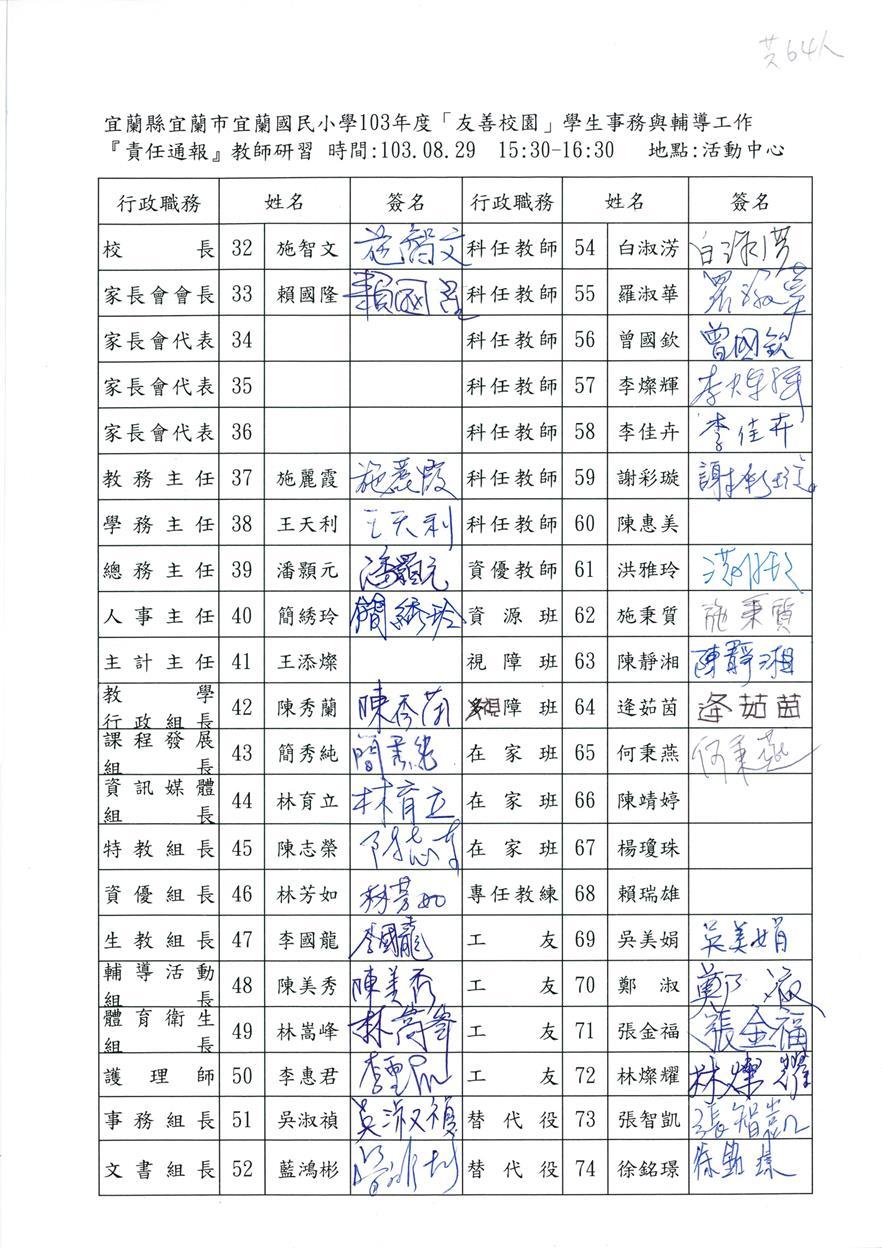 共64人
宜蘭縣宜蘭市宜蘭國民小學103年度「友善校園」學生事務與輔導工作
『責任通報』教師研習 時間:103.08.29 15:30-16:30 地點:活動中心
行政職務 姓名 簽名 行政職務 姓名 簽名
校長 32 施智文 施智文 科任教師 54 白淑淓 白淑淓
家長會會長 33 賴國隆 賴國隆 科任教師 55 羅淑華 羅淑華
家長會代表 34 科任教師 56 曾國欽 曾國欽
家長會代表 35 科任教師 57 李燦輝 李燦輝
家長會代表 36 科任教師 58 李佳卉 李佳卉
教務主任 37 施麗霞 施麗霞 科任教師 59 謝彩璇 謝彩璇
學務主任 38 王天利 王天利 科任教師 60 陳惠美
總務主任 39 潘顥元 潘顥元 資優教師 61 洪雅玲
人事主任 40 簡綉玲 簡綉玲 資源班 62 施秉質 施秉質
主計主任 41 王添燦 視障班 63 陳靜湘 陳靜湘
教學行政組長 42 陳秀蘭 陳秀蘭 視障班 64 逄茹茵 逄茹茵
課程發展組長 43 簡秀純 在家班 65 何秉燕 何秉燕
資訊媒體組長 44 林育立 林育立 在家班 66 陳靖婷
特教組長 45 陳志榮 在家班 67 楊瓊珠
資優組長 46 林芳如 林芳如 專任教練 68 賴瑞雄
生教組長 47 李國龍 李國龍 工友 69 吳美娟 吳美娟
輔導活動組長 48 陳美秀 陳美秀 工友 70 鄭淑 鄭淑
體育衛生組長 49 林嵩峰 林嵩峰 工友 71 張金福 張金福
護理師 50 李惠君 工友 72 林燦耀 林燦耀
事務組長 51 吳淑禎 吳淑禎 替代役 73 張智凱 張智凱
文書組長 52 藍鴻彬 替代役 74 徐銘璟 徐銘璟